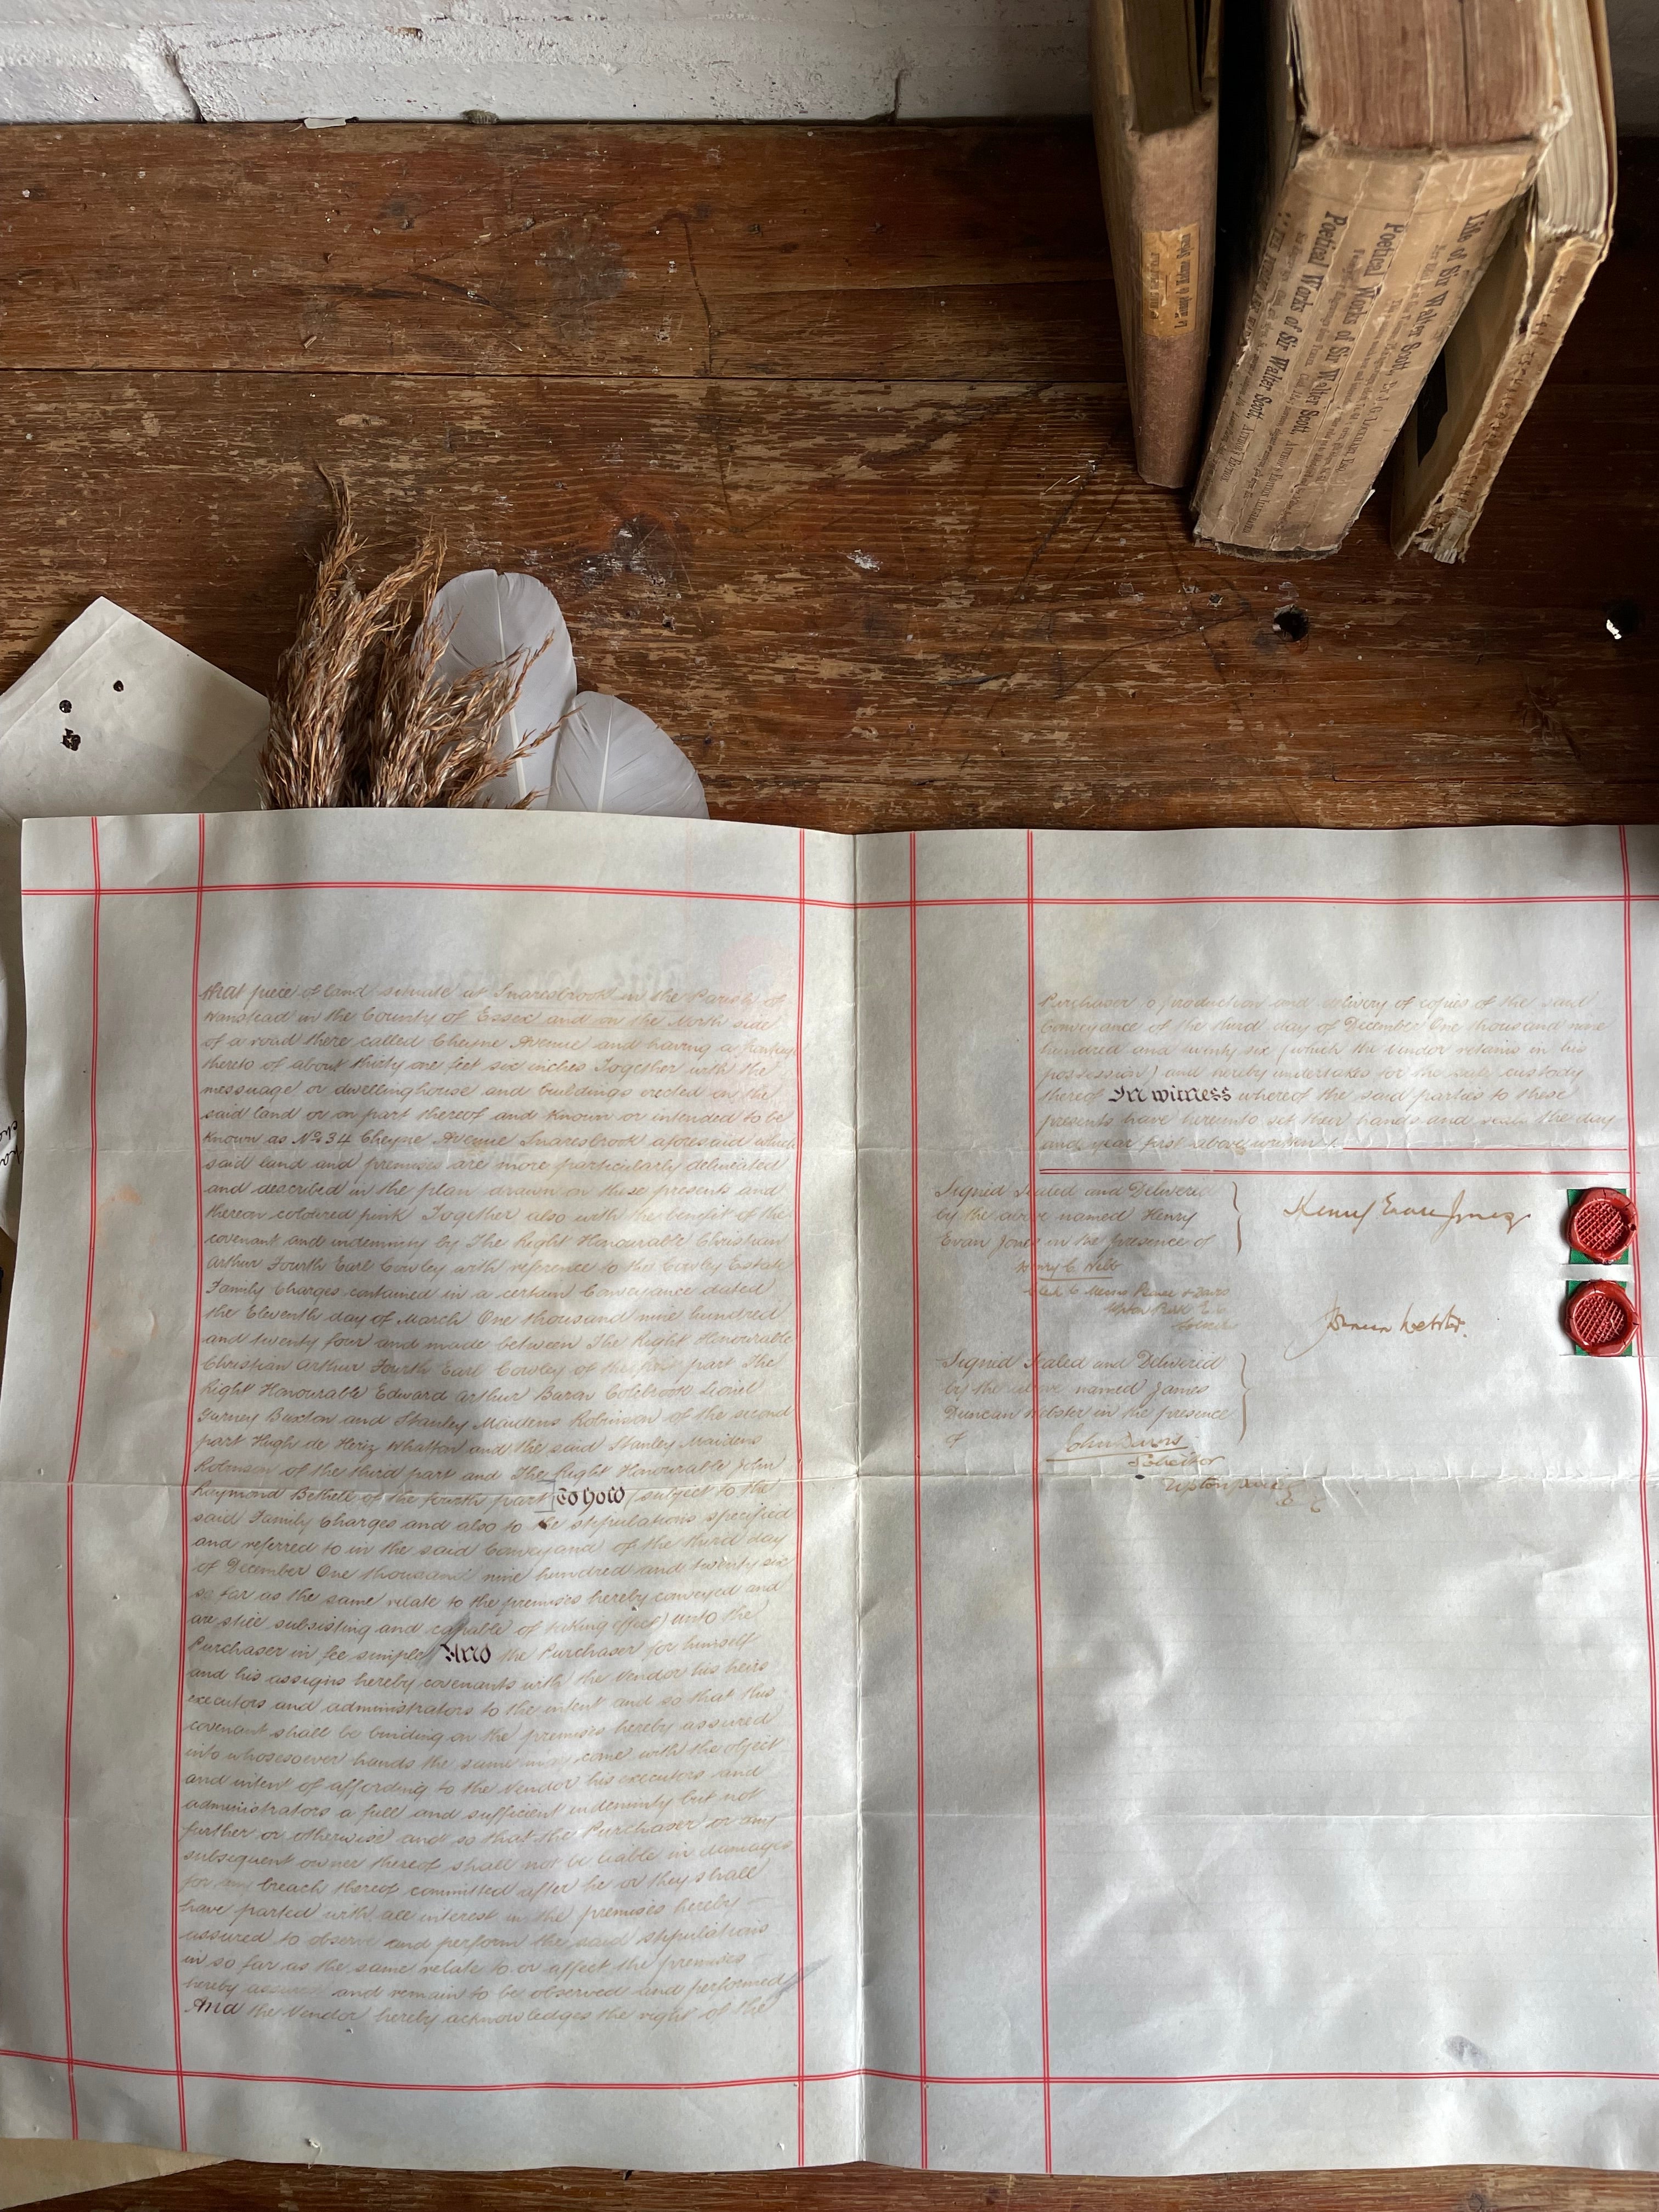 Life of Sir Walter Scott,
Poetical Works of Sir Walter Scott,
Poetical Works of Sir Walter Scott,
that piece of land situate at Snaresbrook in the Parish of
Wanstead in the County of Essex and on the North side
of a road there called Cheyne Avenue and having a frontage
thereto of about thirty one feet six inches Together with the
messuage or dwellinghouse and buildings erected on the
said land or on part thereof and known or intended to be
known as No 34 Cheyne Avenue Snaresbrook aforesaid which
said land and premises are more particularly delineated
and described in the plan drawn on these presents and
thereon coloured pink Together also with the benefit of the
covenant and indemnity by The Right Honourable Christian
Arthur Fourth Earl Cowley with reference to the Cowley Estate
Family Charges contained in a certain Conveyance dated
the Eleventh day of March One thousand nine hundred
and twenty four and made between The Right Honourable
Christian Arthur Fourth Earl Cowley of the first part The
Right Honourable Edward Arthur Baron Colebrook Lionel
Gurney Buxton and Stanley Maidens Robinson of the second
part Hugh de Heriz Whatton and the said Stanley Maidens
Robinson of the third part and The Right Honourable John
Raymond Bethell of the fourth part To hold (subject to the
said Family Charges and also to the stipulations specified
and referred to in the said Conveyance of the third day
of December One thousand nine hundred and twenty six
so far as the same relate to the premises hereby conveyed and
are still subsisting and capable of taking effect) unto the
Purchaser in fee simple And the Purchaser for himself
and his assigns hereby covenants with the Vendor his heirs
executors and administrators to the intent and so that this
covenant shall be binding on the premises hereby assured
into whosesoever hands the same may come with the object
and intent of affording to the Vendor his executors and
administrators a full and sufficient indemnity but not
further or otherwise and so that the Purchaser or any
subsequent owner thereof shall not be liable in damages
for any breach thereof committed after he or they shall
have parted with all interest in the premises hereby
assured to observe and perform the said stipulations
in so far as the same relate to or affect the premises
hereby assured and remain to be observed and performed
And the Vendor hereby acknowledges the right of the
Purchaser to production and delivery of copies of the said
Conveyance of the third day of December One thousand nine
hundred and twenty six (which the Vendor retains in his
possession) and hereby undertakes for the safe custody
thereof In witness whereof the said parties to these
presents have hereunto set their hands and seals the day
and year first above written
Signed Sealed and Delivered
by the above named Henry
Evan Jones in the presence of
Henry C Webb
Upton Park E.
Henry Evan Jones
Signed Sealed and Delivered
by the above named James
Duncan Webster in the presence
of
John Davis
Solicitor
Upton Park
Duncan Webster.